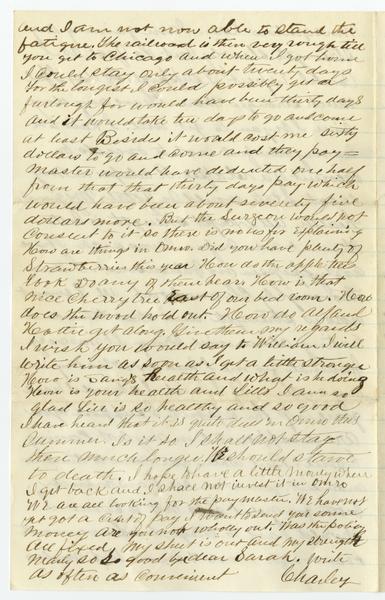 and I am not now able to stand the
fatigue. The railroad is then very rough till
you get to Chicago and when I got home
I could stay only about twenty days
for the longest I could possibly get a
furlough for would have been thirty days
and it would take ten days to go and come
at least Besides it would cost me sixty
dollars to go and come and they pay=
master would have deducted one half
from that that thirty days pay which
would have been about seventy five
dollars more. But the Surgeon would not
consent to it so there is no use for explaining
How are things in Omro. Did you have plenty of
Strawberries this year How do the apple trees
look Do any of them bear. How is that
nice Cherry tree East of our bed room. How
does the wood hold out. How do Alf and
Hattie get along. Give them my regards
I wish you would say to William I will
write him as soon as I get a little stronger
How is health and what is he doing
How is your health and Lills I am so
glad Lill is so healthy and so good
I have heard that it is quite dull in Omro this
Summer. Is it so I shall not stay
there much longer. We should starve
to death. I hope to have a little money when
I get back and I shall not invest it in Omro
We are all looking for the paymaster. We have not
got a cent of pay I want to send you some
money are you not wholly out. Was the policy
all fixed. My sheet is out and my strength
nearly so So good by dear Sarah. write
as often as convenient Charley